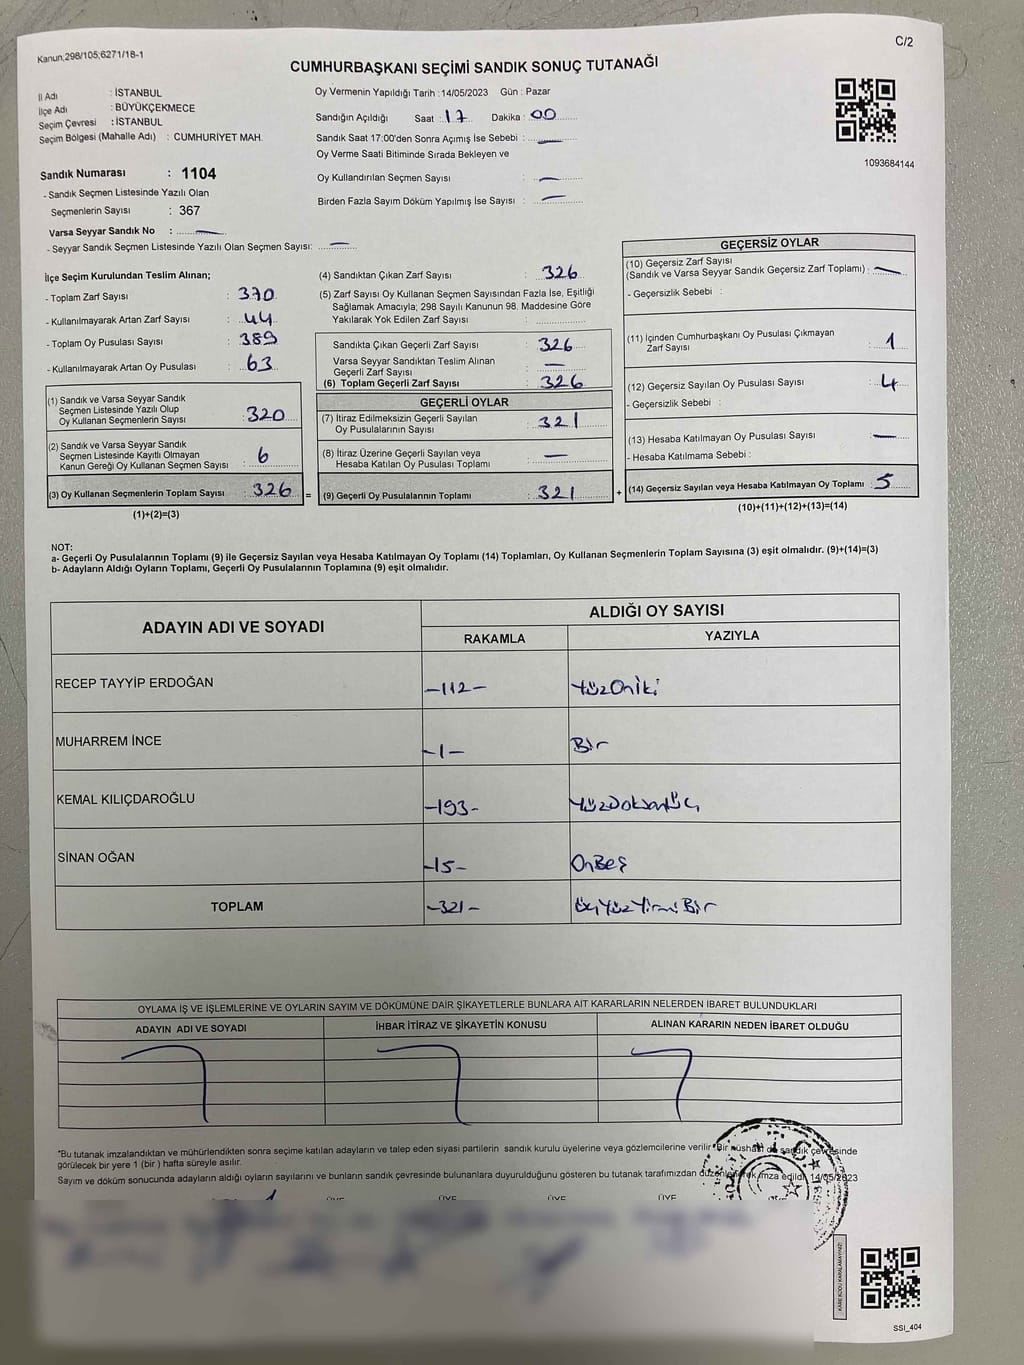 Kanun,298/105;6271/18-1
C/2
CUMHURBAŞKANI SEÇİMİ SANDIK SONUÇ TUTANAĞI
İl Adı : İSTANBUL
İlçe Adı : BÜYÜKÇEKMECE
Seçim Çevresi : İSTANBUL
Seçim Bölgesi (Mahalle Adı) : CUMHURİYET MAH.
Oy Vermenin Yapıldığı Tarih :14/05/2023 Gün : Pazar
Sandığın Açıldığı Saat : 17 Dakika : 00
Sandık Saat 17:00'den Sonra Açımış İse Sebebi : —
Oy Verme Saati Bitiminde Sırada Bekleyen ve
Oy Kullandırılan Seçmen Sayısı : —
Birden Fazla Sayım Döküm Yapılmış İse Sayısı : —
1093684144
Sandık Numarası : 1104
- Sandık Seçmen Listesinde Yazılı Olan
Seçmenlerin Sayısı : 367
Varsa Seyyar Sandık No : —
- Seyyar Sandık Seçmen Listesinde Yazılı Olan Seçmen Sayısı: —
İlçe Seçim Kurulundan Teslim Alınan;
- Toplam Zarf Sayısı : 370
- Kullanılmayarak Artan Zarf Sayısı : 44
- Toplam Oy Pusulası Sayısı : 389
- Kullanılmayarak Artan Oy Pusulası : 63
(1) Sandık ve Varsa Seyyar Sandık
Seçmen Listesinde Yazılı Olup
Oy Kullanan Seçmenlerin Sayısı : 320
(2) Sandık ve Varsa Seyyar Sandık
Seçmen Listesinde Kayıtlı Olmayan
Kanun Gereği Oy Kullanan Seçmen Sayısı : 6
(3) Oy Kullanan Seçmenlerin Toplam Sayısı : 326
(1)+(2)=(3)
(4) Sandıktan Çıkan Zarf Sayısı : 326
(5) Zarf Sayısı Oy Kullanan Seçmen Sayısından Fazla İse, Eşitliği
Sağlamak Amacıyla; 298 Sayılı Kanunun 98. Maddesine Göre
Yakılarak Yok Edilen Zarf Sayısı :
Sandıkta Çıkan Geçerli Zarf Sayısı : 326
Varsa Seyyar Sandıktan Teslim Alınan
Geçerli Zarf Sayısı : —
(6) Toplam Geçerli Zarf Sayısı : 326
GEÇERLİ OYLAR
(7) İtiraz Edilmeksizin Geçerli Sayılan
Oy Pusulalarının Sayısı : 321
(8) İtiraz Üzerine Geçerli Sayılan veya
Hesaba Katılan Oy Pusulası Toplamı : —
= (9) Geçerli Oy Pusulalarının Toplamı : 321 +
GEÇERSİZ OYLAR
(10) Geçersiz Zarf Sayısı
(Sandık ve Varsa Seyyar Sandık Geçersiz Zarf Toplamı) : —
- Geçersizlik Sebebi :
(11) İçinden Cumhurbaşkanı Oy Pusulası Çıkmayan
Zarf Sayısı : 1
(12) Geçersiz Sayılan Oy Pusulası Sayısı : 4
- Geçersizlik Sebebi :
(13) Hesaba Katılmayan Oy Pusulası Sayısı : —
- Hesaba Katılmama Sebebi :
(14) Geçersiz Sayılan veya Hesaba Katılmayan Oy Toplamı : 5
(10)+(11)+(12)+(13)=(14)
NOT:
a- Geçerli Oy Pusulalarının Toplamı (9) ile Geçersiz Sayılan veya Hesaba Katılmayan Oy Toplamı (14) Toplamları, Oy Kullanan Seçmenlerin Toplam Sayısına (3) eşit olmalıdır. (9)+(14)=(3)
b- Adayların Aldığı Oyların Toplamı, Geçerli Oy Pusulalarının Toplamına (9) eşit olmalıdır.
ADAYIN ADI VE SOYADI
ALDIĞI OY SAYISI
RAKAMLA YAZIYLA
RECEP TAYYİP ERDOĞAN -112- YüzOniki
MUHARREM İNCE -1- Bir
KEMAL KILIÇDAROĞLU -193- YüzDoksanÜç
SİNAN OĞAN -15- OnBeş
TOPLAM -321- ÜçYüzYirmiBir
OYLAMA İŞ VE İŞLEMLERİNE VE OYLARIN SAYIM VE DÖKÜMÜNE DAİR ŞİKAYETLERLE BUNLARA AİT KARARLARIN NELERDEN İBARET BULUNDUKLARI
ADAYIN ADI VE SOYADI İHBAR İTİRAZ VE ŞİKAYETİN KONUSU ALINAN KARARIN NEDEN İBARET OLDUĞU
"Bu tutanak imzalandıktan ve mühürlendikten sonra seçime katılan adayların ve talep eden siyasi partilerin sandık kurulu üyelerine veya gözlemcilerine verilir. Bir nüshası da sandık çevresinde
görülecek bir yere 1 (bir ) hafta süreyle asılır.
Sayım ve döküm sonucunda adayların aldığı oyların sayılarını ve bunların sandık çevresinde bulunanlara duyurulduğunu gösteren bu tutanak tarafımızdan düzenlenerek imza edildi. 14/05/2023
ÜYE ÜYE ÜYE ÜYE
KAREKODU KARALAMAYINIZ!
SSI_404